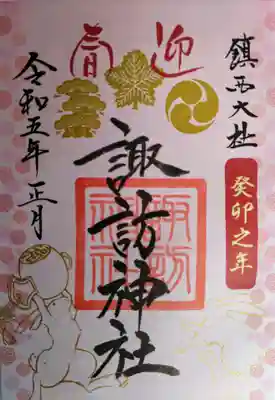 鎮西大社
癸卯之年
迎春
諏訪神社
諏訪神社
令和五年正月